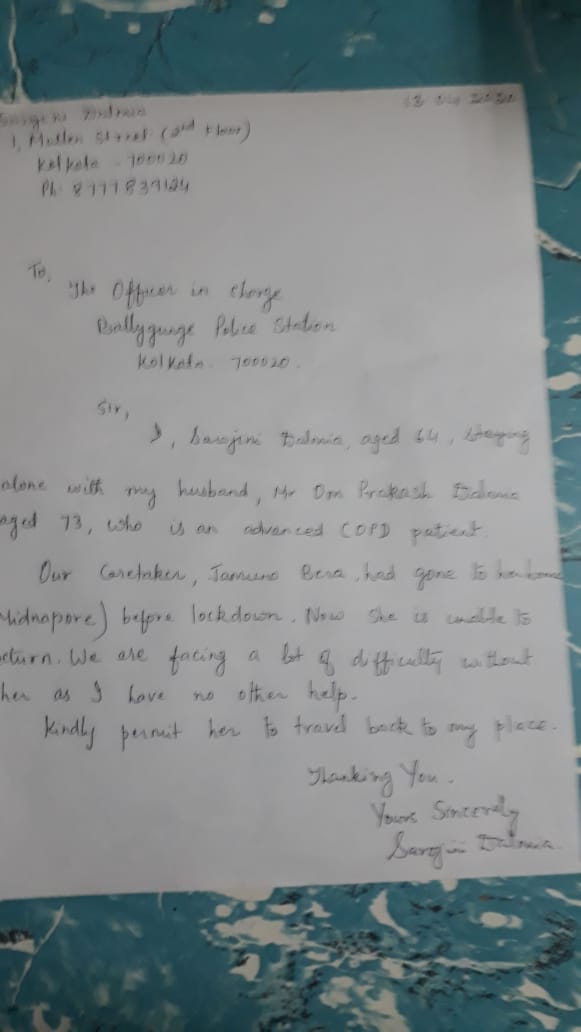 Dalmia
1, Mullen Street (2nd Floor)
Kolkata - 700020
Ph:
To,
The Officer in Charge
Ballygunge Police Station
Kolkata. 700020.
Sir,
I, Sarojini Dalmia, aged 64, staying
alone with my husband, Mr Om Prakash Dalmia
aged 73, who is an advanced COPD patient.
Our Caretaker, Jamuna Bera, had gone to her home
Midnapore) before lockdown. Now she is unable to
return. We are facing a lot of difficulty without
her as I have no other help.
Kindly permit her to travel back to my place.
Thanking You.
Yours Sincerely
Sarojini Dalmia